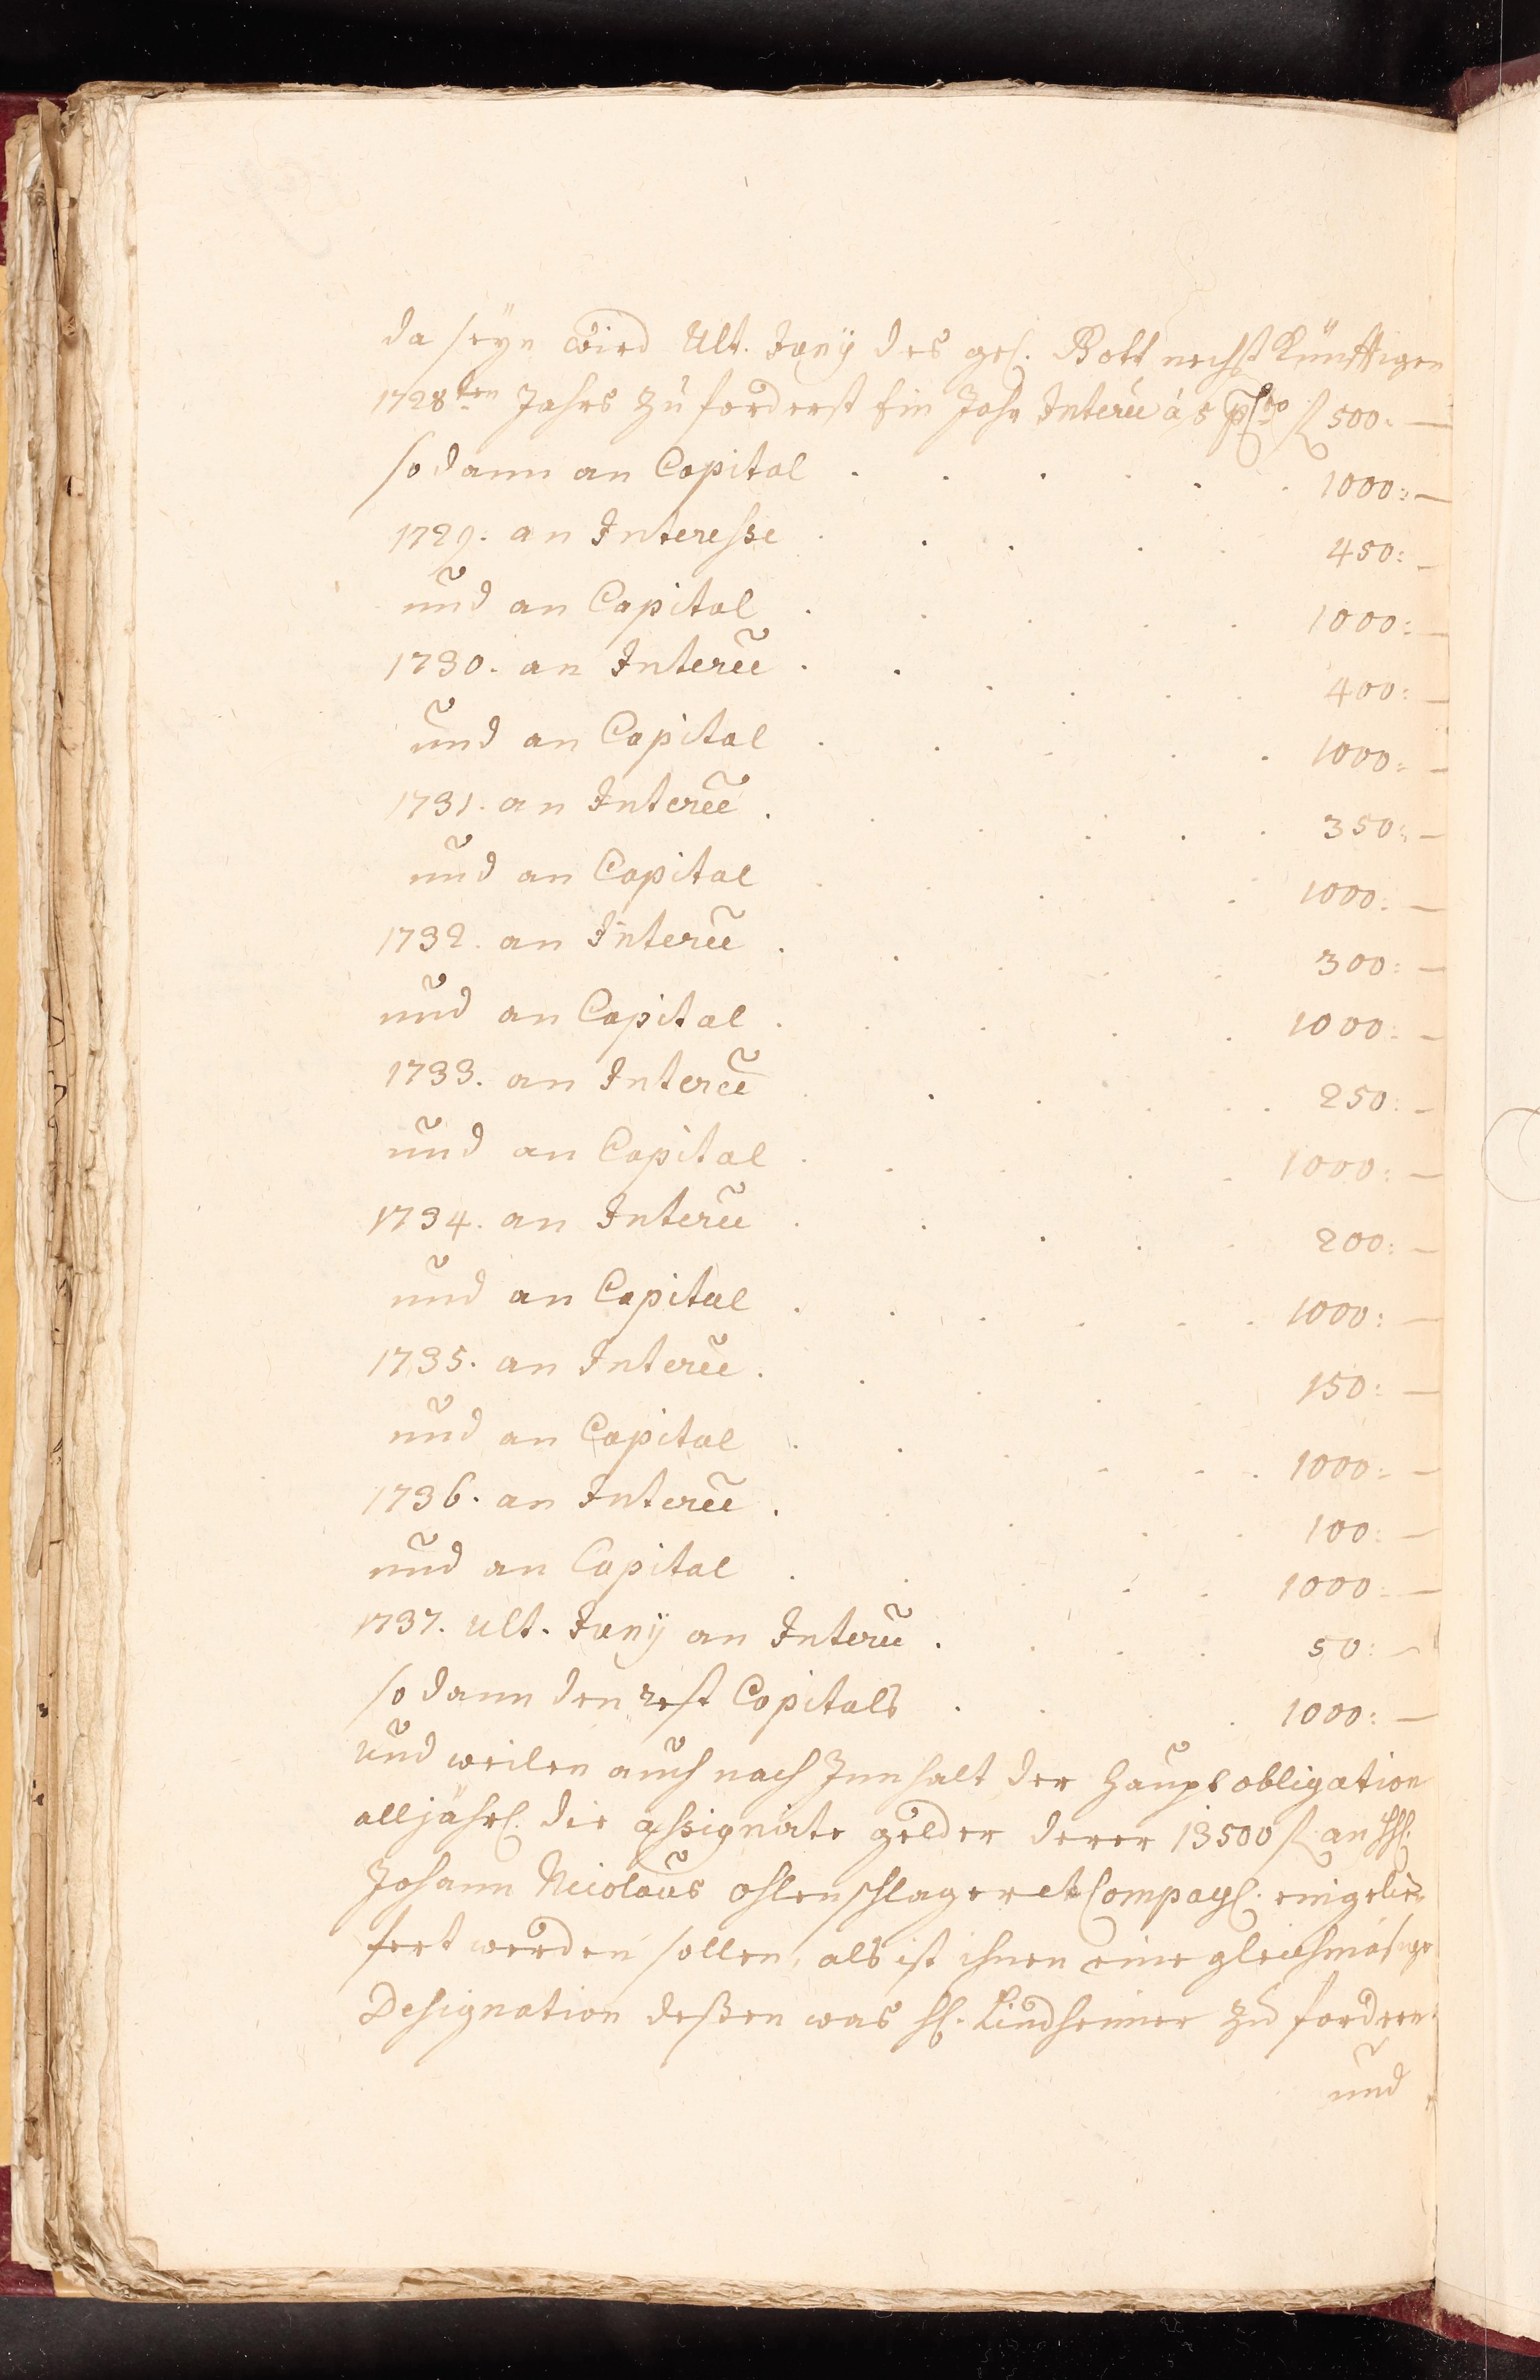 da seyn wird Ult. Juny des gel. Gott nechst künfftigen
1728ten Jahrs zu forderst ein Jahr Interee à 5 pCto fl 500. —
so dann an Capital . . . . . . 1000: —
1729. an Interesse . . . . . 450: —
und an Capital . . . . . 1000: —
1730. an Interee . . . . . . 400: —
und an Capital . . . . . 1000: —
1731. an Interee . . . . . . 350: —
und an Capital . . . . . 1000: —
1732. an Interee . . . . . 300: —
und an Capital . . . . . 1000: —
1733. an Interee . . . . . . 250: —
und an Capital . . . . . 1000: —
1734. an Interee . . . . . 200: —
und an Capital . . . . . . 1000: —
1735. an Interee . . . . . 150: —
und an Capital . . . . . . 1000: —
1736. an Interee . . . . . 100: —
und an Capital . . . . . 1000: —
1737. Ult. Juny an Interee . . . . 50: —
so dann den rest Capitals . . . . 1000: —
und weilen auch nach Innhalt der Haupt obligation
alljährl. die assignirte gelder derer 13500 fl. an HH.
Johann Nicolaus Ohlenschlager et Compagl. eingelie-
fert werden sollen, als ist ihnen eine gleichmäsige
Designation deßen was H. Lindheimer zu fordern
und